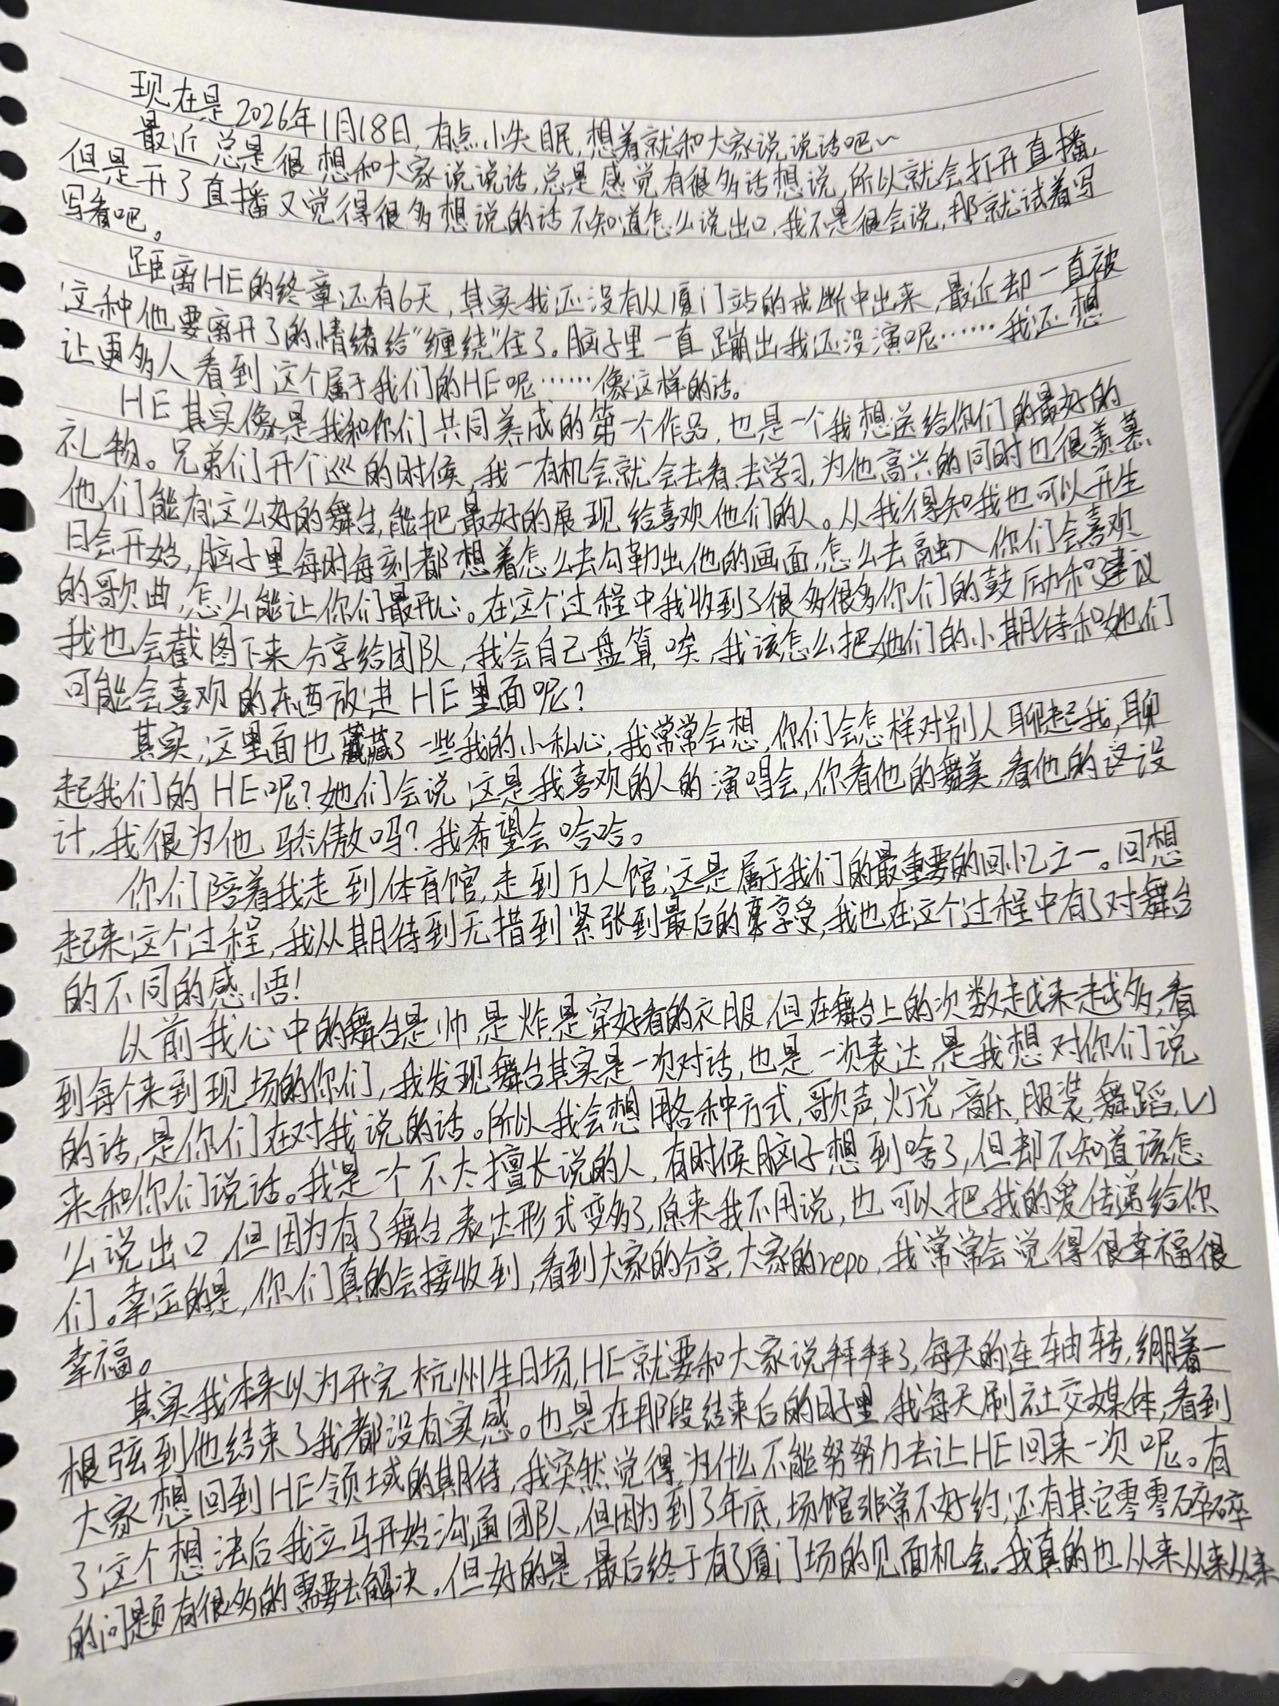 现在是2026年1月18日,有点小失眠,想着就和大家说说话吧~
最近总是很想和大家说说话,总是感觉有很多话想说,所以就会打开直播,
但是开了直播又觉得很多想说的话不知道怎么说出口,我不是很会说,那就试着写
写看吧。
距离HE的终章还有6天,其实我还没有从厦门站的戒断中出来,最近却一直被
这种他要离开了的情绪给“缠绕”住了。脑子里一直蹦出我还没演呢……我还想
让更多人看到这个属于我们的HE呢……像这样的话。
HE其实像是我和你们共同养成的第一个作品,也是一个我想送给你们的最好的
礼物。兄弟们开个巡的时候,我一有机会就会去看,去学习,为他高兴的同时也很羡慕
他们能有这么好的舞台,能把最好的展现给喜欢他们的人。从我得知我也可以开生
日会开始,脑子里每时每刻都想着怎么去勾勒出他的画面,怎么去融入你们会喜欢
的歌曲,怎么能让你们最开心。在这个过程中我收到了很多很多你们的鼓励和建议
我也会截图下来分享给团队,我会自己盘算,唉,我该怎么把她们的小期待和她们
可能会喜欢的东西放进HE里面呢?
其实,这里面也藏了一些我的小私心,我常常会想,你们会怎样对别人聊起我,聊
起我们的HE呢?她们会说这是我喜欢的人的演唱会,你看他的舞美,看他的这设
计,我很为他骄傲吗?我希望会哈哈。
你们陪着我走到体育馆,走到万人馆,这是属于我们的最重要的回忆之一。回想
起来这个过程,我从期待到无措到紧张到最后的享受,我也在这个过程中有了对舞台
的不同的感悟!
以前我心中的舞台是帅,是炸,是穿好看的衣服,但在舞台上的次数越来越多,看
到每个来到现场的你们,我发现舞台其实是一次对话,也是一次表达,是我想对你们说
的话,是你们在对我说的话。所以我会想用各种方式,歌声,灯光,音乐,服装,舞蹈,VJ
来和你们说话。我是一个不太擅长说的人,有时候脑子想到啥了,但却不知道该怎
么说出口,但因为有了舞台,表达形式变多了,原来我不用说,也可以把我的爱传递给你
们。幸运的是,你们真的会接收到,看到大家的分享,大家的repo,我常常会觉得很幸福很
幸福。
其实我本来以为开完杭州生日场,HE就要和大家说拜拜了,每天的连轴转,绷着一
根弦到他结束了我都没有实感。也是在那段结束后的日子里,我每天刷社交媒体,看到
大家想回到HE领域的期待,我突然觉得,为什么不能努努力去让HE回来一次呢。有
了这个想法后我立马开始沟通团队,但因为到了年底,场馆非常不好约,还有其它零零碎碎
的问题有很多的需要去解决。但好的是,最后终于有了厦门场的见面机会。我真的也从来从来从来